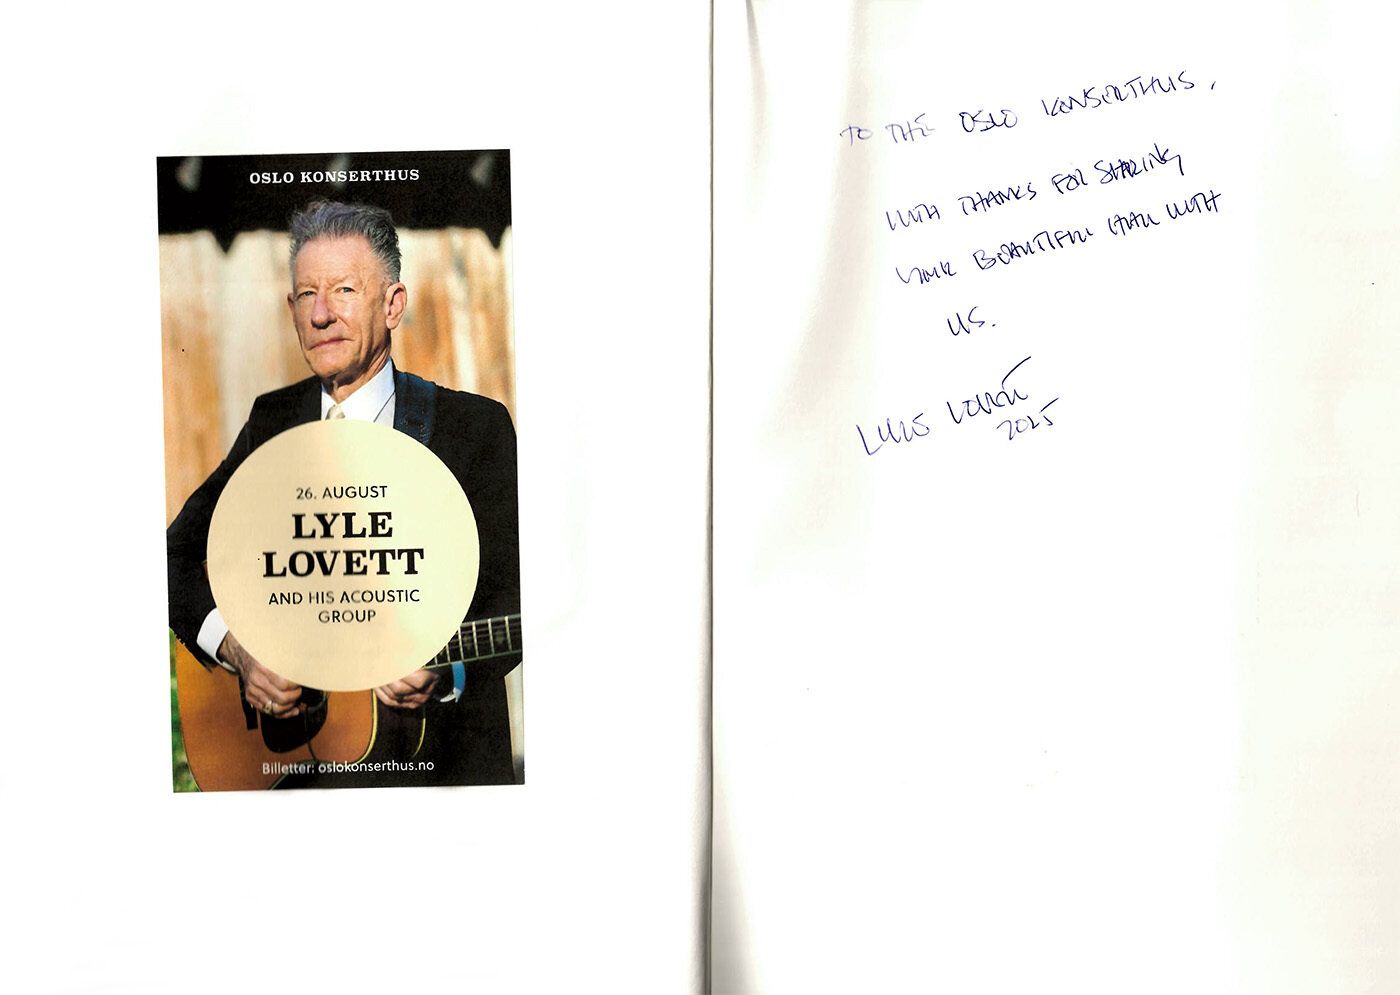 OSLO KONSERTHUS
26. AUGUST
LYLE
LOVETT
AND HIS ACOUSTIC
GROUP
Billetter: oslokonserthus.no
TO THE OSLO KONSERTHUS,
WITH THANKS FOR SHARING
YOUR BEAUTIFUL HALL WITH
US.
LYLE LOVETT
2025